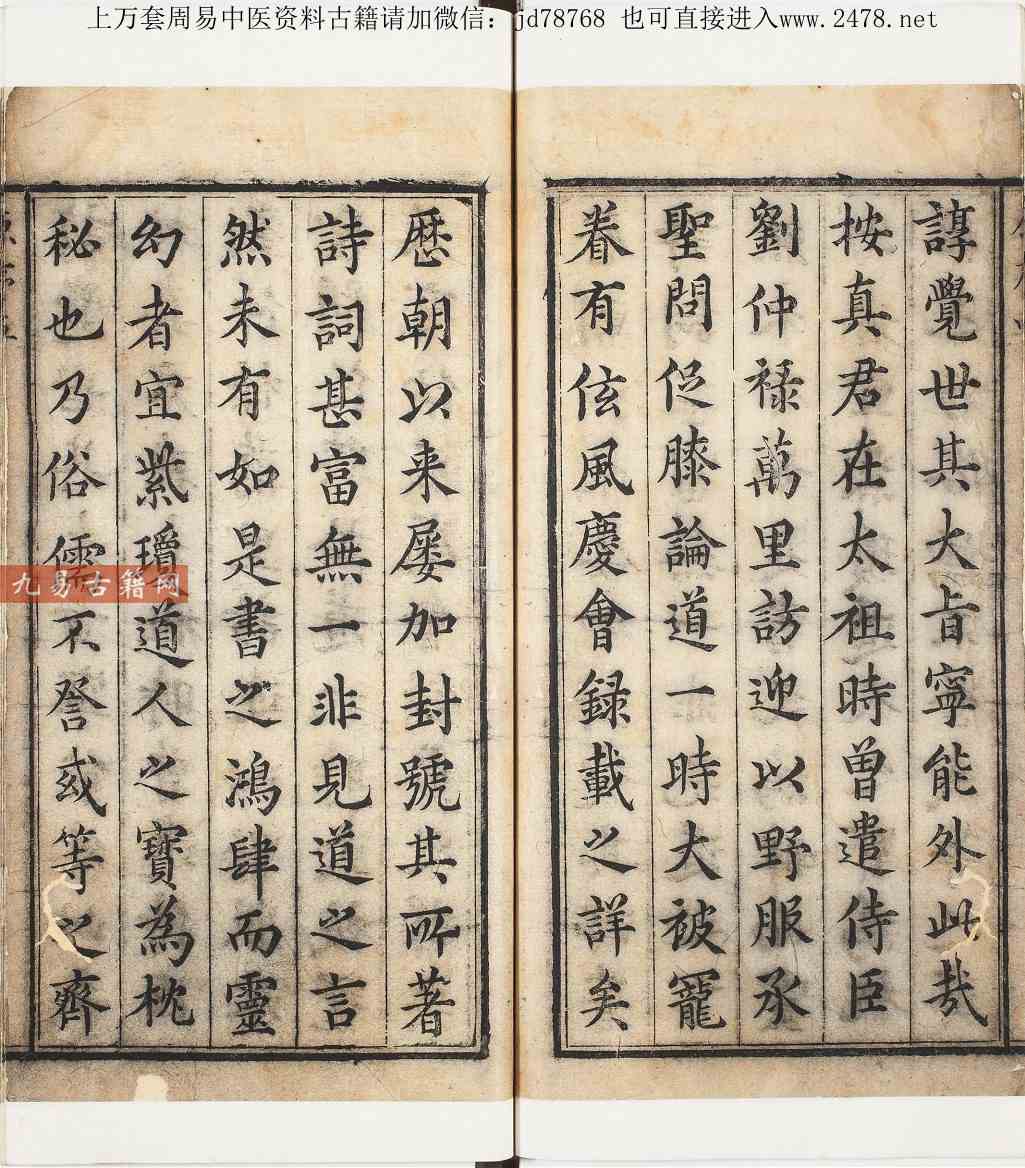 上万套周易中医资料古籍请加微信：jd78768 也可直接进入www.2478.net
諄覺世其大旨寧能外此哉
按真君在太祖時曾遣侍臣
劉仲祿萬里訪迎以野服承
聖問促膝論道一時大被寵
眷有伭風慶會録載之詳矣
歷朝以来屡加封號其所著
詩詞甚富無一非見道之言
然未有如是書之鴻肆而靈
幻者宜紫瓊道人之寶為枕
秘也乃俗儒不詧或等之齊
九易古籍网